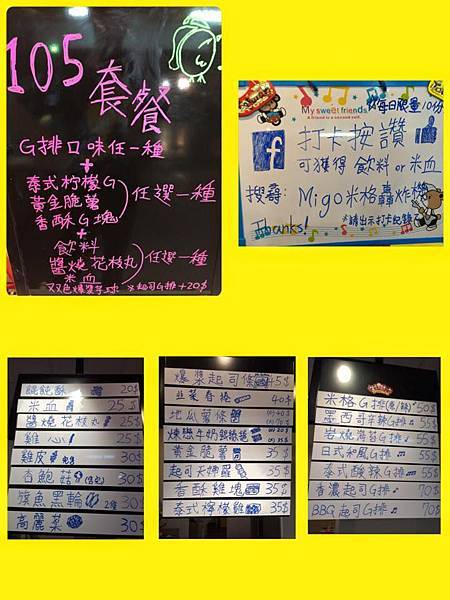 105
套餐
G排口味任一種
+
泰式柠檬G
黃金脆薯
香酥G塊
任選一種
+
飲料
醬燒花枝丸
米血
任選一種
※起司G排+20$
※每日限量10份
My sweet friends
A friend is a second self.
f 打卡按讚
可獲得 飲料 or 米血
搜尋: Migo米格轟炸機
Thanks!
※請出示打卡紀錄
餛飩酥 20$
米血 25$
醬燒花枝丸 25$
雞心 25$
雞皮 30$
杏鮑菇 30$
旗魚黑輪 30$
高麗菜 30$
爆漿起司條 45$
韭菜春捲 40$
地瓜薯條
煉戀牛奶銀絲卷
黃金脆薯 35$
起可天婦羅 35$
香酥雞塊 35$
泰式檸檬雞 35$
米格G排(原/辣) 50$
墨西哥辛辣G排 55$
岩燒海苔G排 55$
日式和風G排 55$
泰式酸辣G排 55$
香濃起司G排 70$
BBQ起司G排 70$